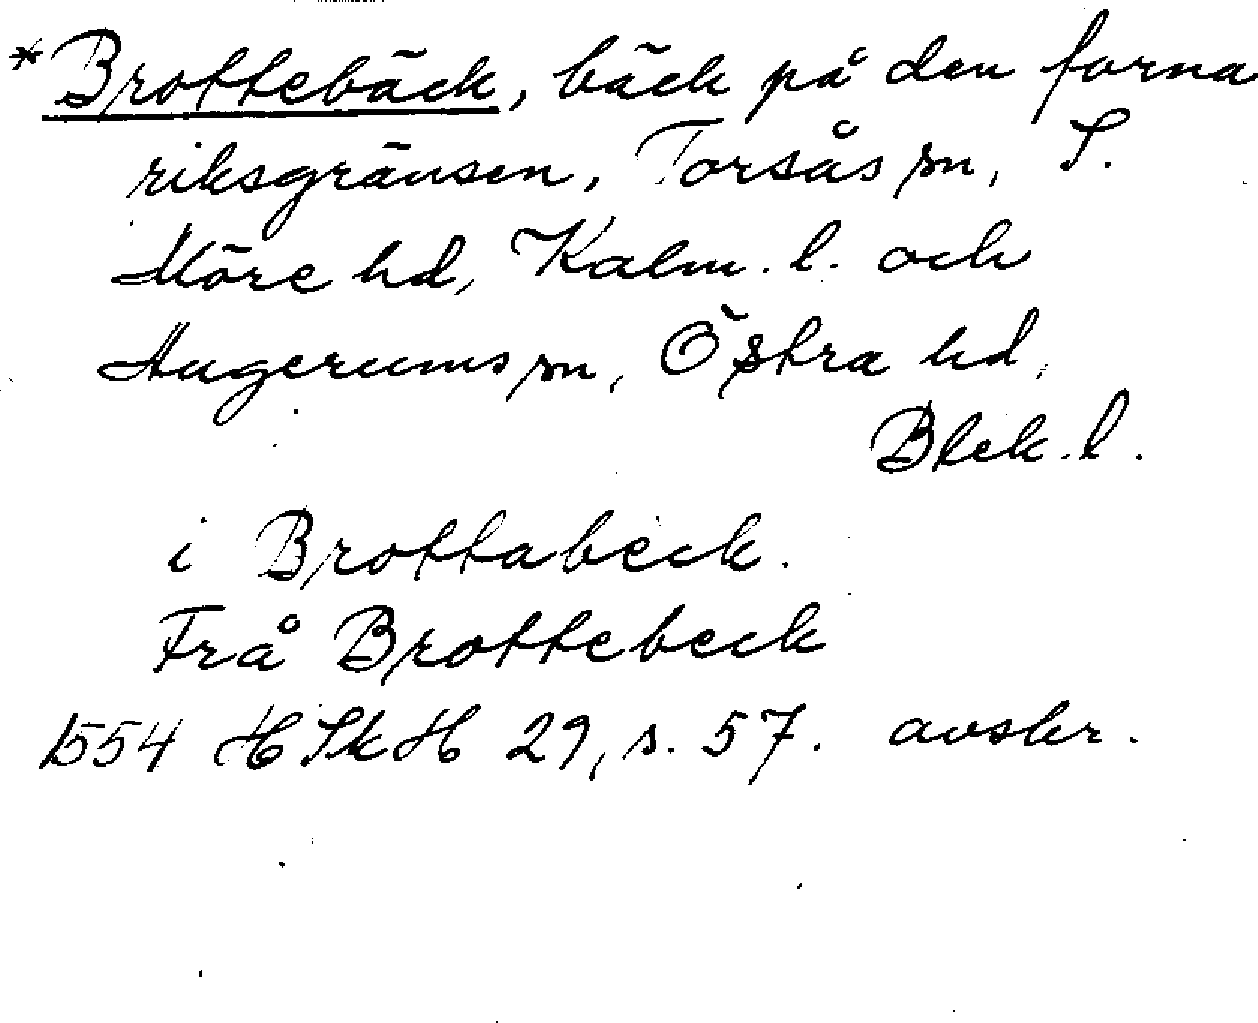 *Brottebäck, bäck på den forna
riksgränsen, Torsås sn, S.
Möre hd, Kalm. l. och
Augerums sn, Östra hd,
Blek. l.
i Brottabeck.
Frå Brottebeck
1554 HSkH 29, s. 57. avskr.